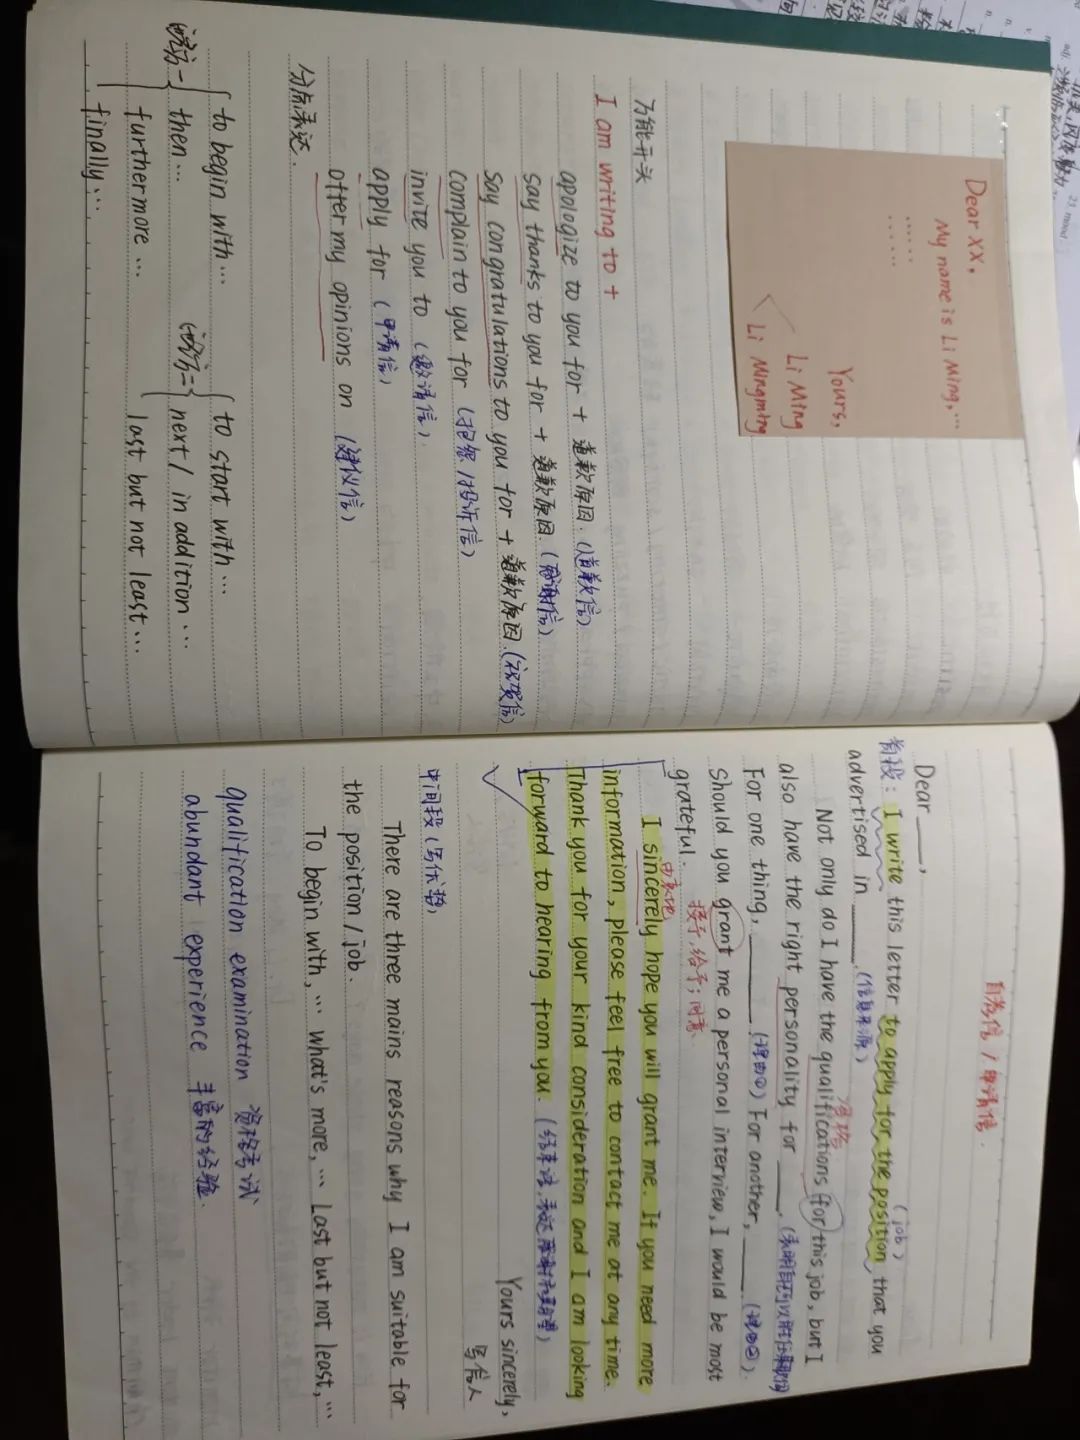 Dear XX,
My name is Li Ming, ...
......
......
Yours,
Li Ming
Li Mingming
万能开头
I am writing to +
apologize to you for + 道歉原因.(道歉信)
say thanks to you for + 道歉原因.(感谢信)
say congratulations to you for + 道歉原因.(祝贺信)
complain to you for (抱怨/投诉信)
invite you to (邀请信).
apply for (申请信)
offer my opinions on (建议信)
分点表达.
to begin with...
then...
furthermore ...
finally...
to start with...
next / in addition ...
last but not least...
自荐信 / 申请信.
Dear ____,
(job)
首段: I write this letter to apply for the position that you
advertised in ____.(信息来源)
资格
Not only do I have the qualifications for this job, but I
also have the right personality for ____.
For one thing, ____.(理由①) For another, ____.(理由②).
Should you grant me a personal interview, I would be most
grateful. 授予,给予;同意
I sincerely hope you will grant me. If you need more
information, please feel free to contact me at any time.
Thank you for your kind consideration and I am looking
forward to hearing from you.
Yours sincerely,
写信人
中间段(写优势)
There are three mains reasons why I am suitable for
the position / job.
To begin with, ... what's more, ... Last but not least, ...
qualification examination 资格考试
abundant experience 丰富的经验.